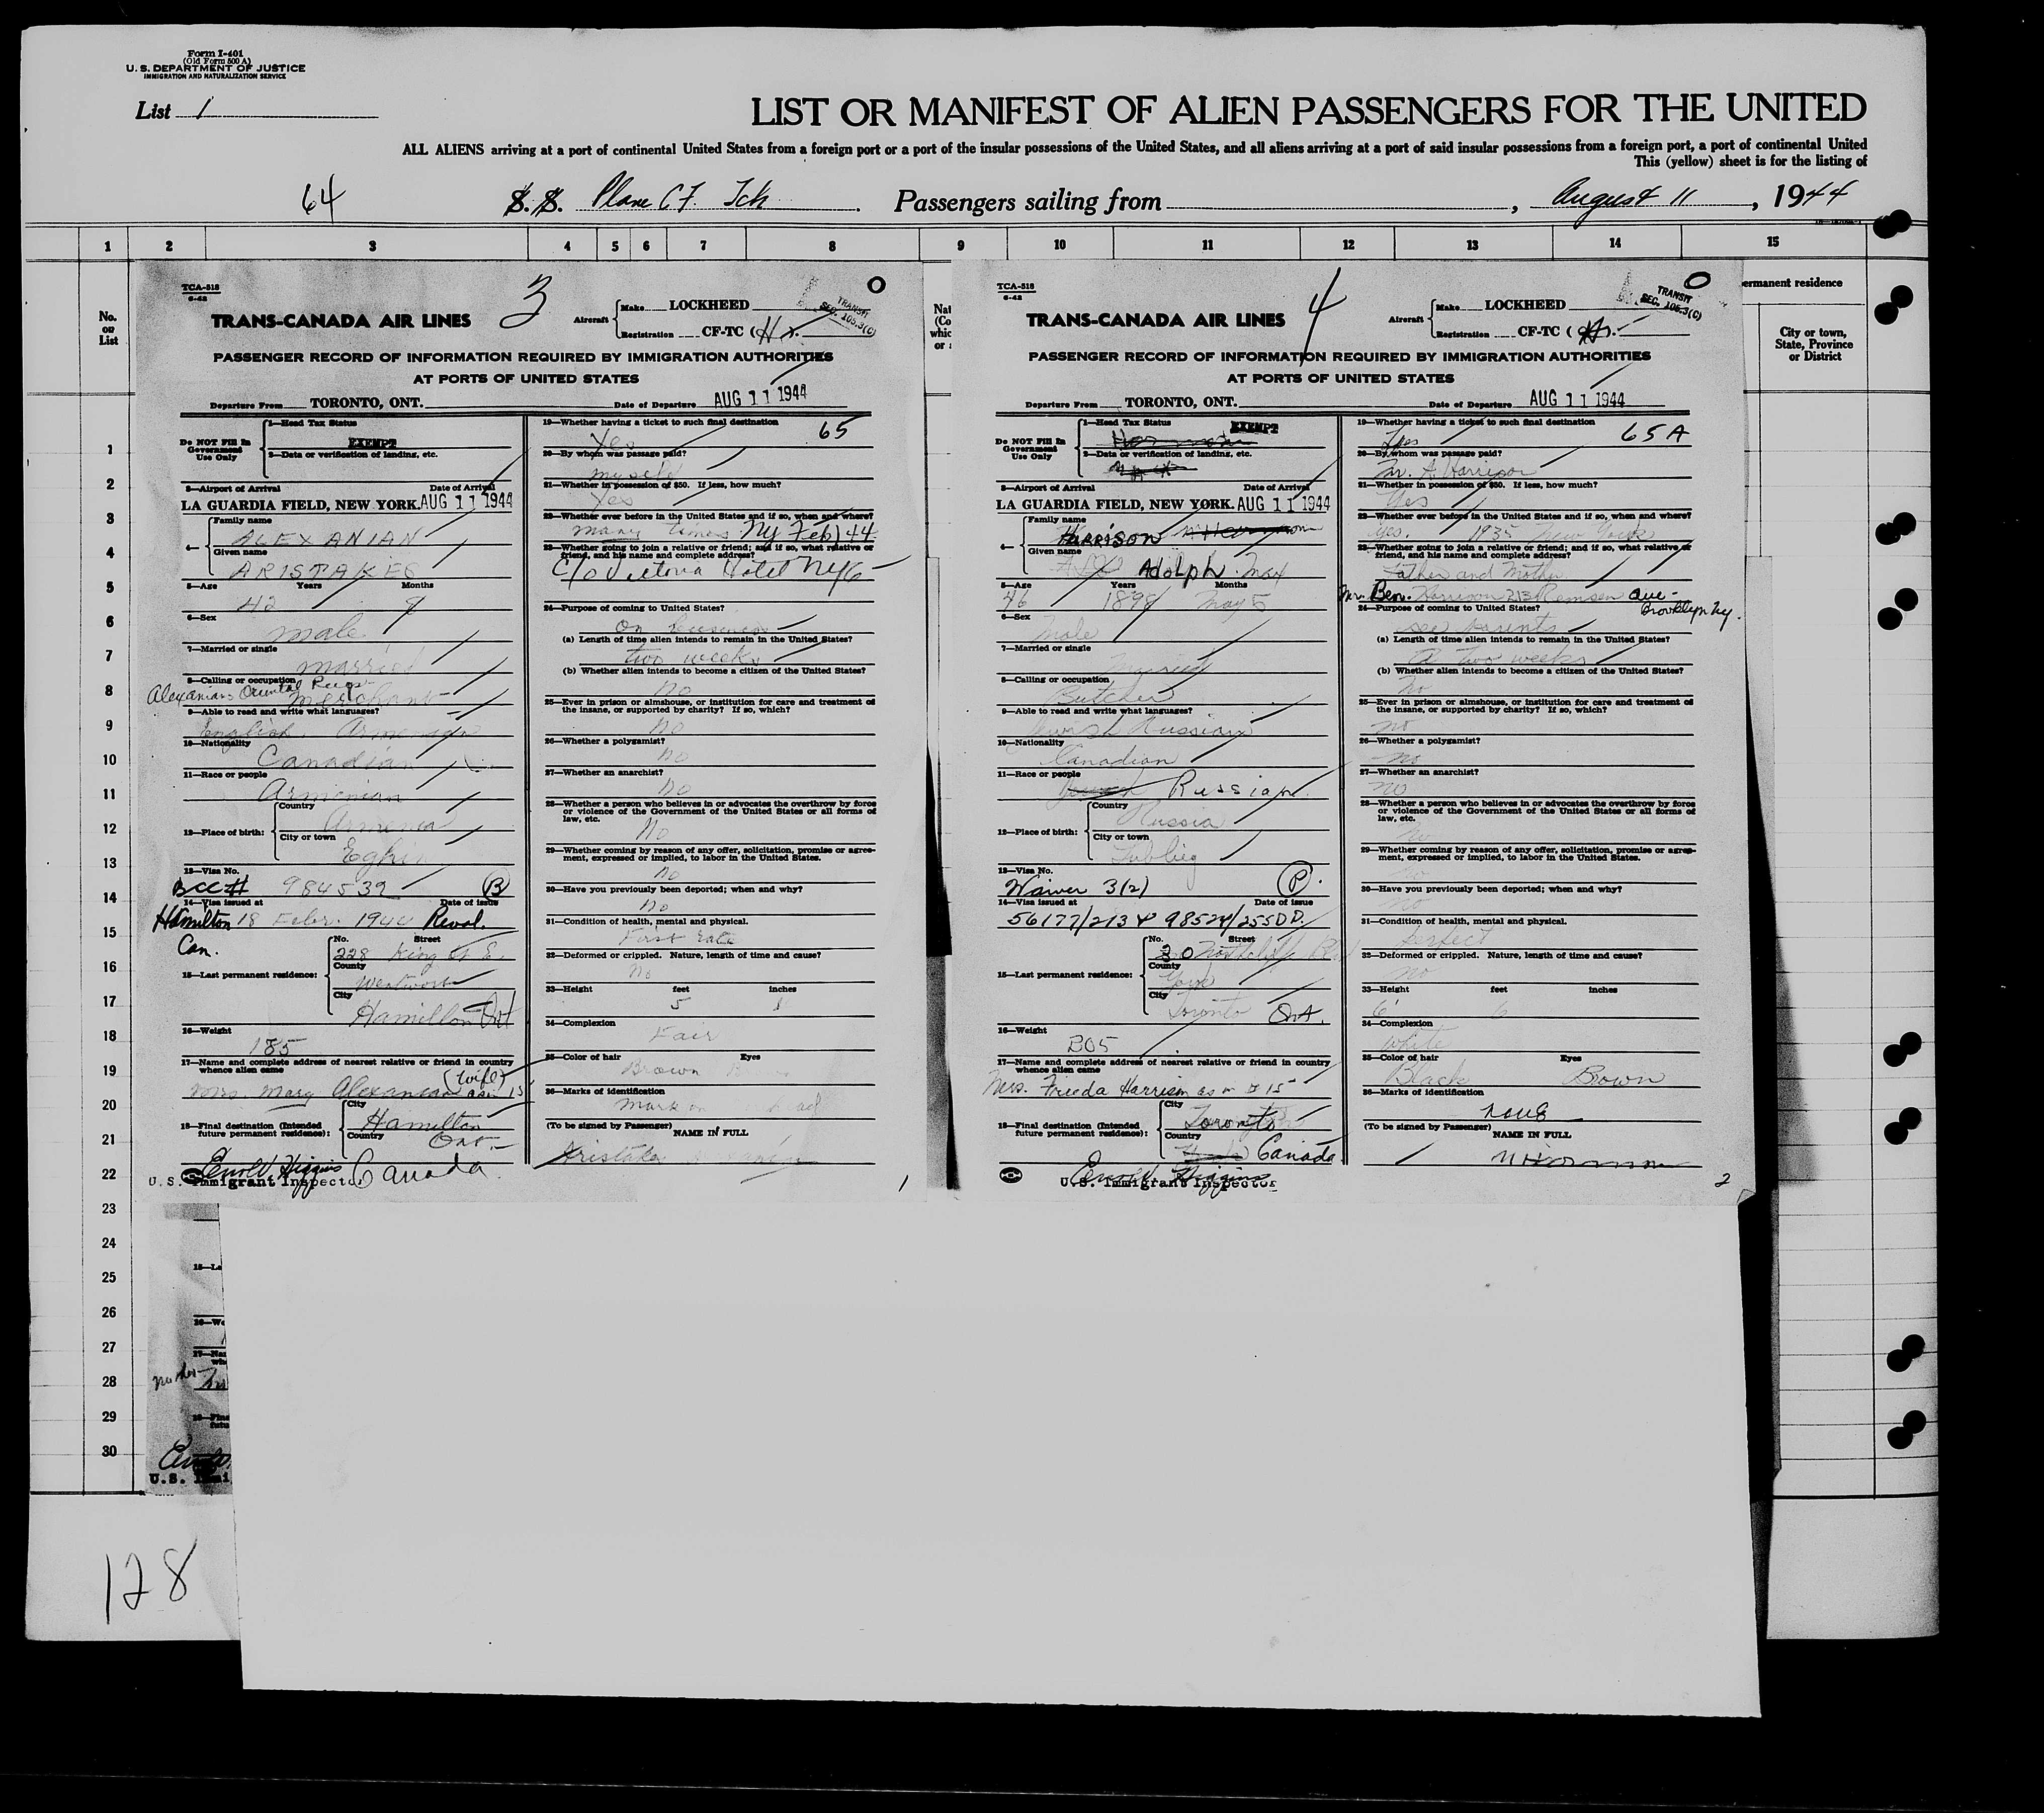 Form I-401
(Old Form 500 A)
U. S. DEPARTMENT OF JUSTICE
IMMIGRATION AND NATURALIZATION SERVICE
List 1
LIST OR MANIFEST OF ALIEN PASSENGERS FOR THE UNITED
ALL ALIENS arriving at a port of continental United States from a foreign port or a port of the insular possessions of the United States, and all aliens arriving at a port of said insular possessions from a foreign port, a port of continental United
This (yellow) sheet is for the listing of
64 S. S. Plane CF. Tch Passengers sailing from , August 11, 1944
1 2 3 4 5 6 7 8 9 10 11 12 13 14 15
No.
on
List
TCA-518
6-42
3
TRANS-CANADA AIR LINES
Aircraft
Make LOCKHEED
Registration CF-TC (H
TRANSIT
SEC. 105.3(C)
PASSENGER RECORD OF INFORMATION REQUIRED BY IMMIGRATION AUTHORITIES
AT PORTS OF UNITED STATES
Departure From TORONTO, ONT. Date of Departure AUG 11 1944
Do NOT Fill In
Government
Use Only
1—Head Tax Status
EXEMPT
2—Data or verification of landing, etc.
3—Airport of Arrival Date of Arrival
LA GUARDIA FIELD, NEW YORK. AUG 11 1944
4—
Family name
ALEXANIAN
Given name
ARISTAKES
5—Age Years Months
42 9
6—Sex
male
7—Married or single
married
8—Calling or occupation
Alexanians Oriental Rugs
Merchant
9—Able to read and write what languages?
English. Armenian
10—Nationality
Canadian
11—Race or people
Armenian
12—Place of birth:
Country
Armenia
City or town
Eghin
13—Visa No.
BCC# 984539 B
14—Visa issued at Date of issue
Hamilton 18 Febr. 1944 Reval.
Can.
15—Last permanent residence:
No. Street
228 King St E.
County
Wentworth
City
Hamilton Ont
16—Weight
185
17—Name and complete address of nearest relative or friend in country
whence alien came
(wife)
Mrs. Mary Alexanian as in 15
18—Final destination (Intended
future permanent residence):
City
Hamilton
Ont
Country
Canada
U.S. Immigrant Inspector
19—Whether having a ticket to such final destination
65
Yes
20—By whom was passage paid?
myself
21—Whether in possession of $50. If less, how much?
Yes
22—Whether ever before in the United States and if so, when and where?
many times NY Feb/44
23—Whether going to join a relative or friend; and if so, what relative or
friend, and his name and complete address?
c/o Victoria Hotel NYC
24—Purpose of coming to United States?
On business
(a) Length of time alien intends to remain in the United States?
two weeks
(b) Whether alien intends to become a citizen of the United States?
No
25—Ever in prison or almshouse, or institution for care and treatment of
the insane, or supported by charity? If so, which?
No
26—Whether a polygamist?
No
27—Whether an anarchist?
No
28—Whether a person who believes in or advocates the overthrow by force
or violence of the Government of the United States or all forms of
law, etc.
No
29—Whether coming by reason of any offer, solicitation, promise or agree-
ment, expressed or implied, to labor in the United States.
No
30—Have you previously been deported; when and why?
No
31—Condition of health, mental and physical.
First rate
32—Deformed or crippled. Nature, length of time and cause?
No
33—Height feet inches
5
34—Complexion
Fair
35—Color of hair Eyes
Brown
36—Marks of identification
Mark on
(To be signed by Passenger) NAME IN FULL
Aristakes
1
TCA-518
6-42
4
TRANS-CANADA AIR LINES
Aircraft
Make LOCKHEED
Registration CF-TC (
TRANSIT
SEC. 105.3(C)
PASSENGER RECORD OF INFORMATION REQUIRED BY IMMIGRATION AUTHORITIES
AT PORTS OF UNITED STATES
Departure From TORONTO, ONT. Date of Departure AUG 11 1944
Do NOT Fill In
Government
Use Only
1—Head Tax Status EXEMPT
2—Data or verification of landing, etc.
3—Airport of Arrival Date of Arrival
LA GUARDIA FIELD, NEW YORK. AUG 11 1944
4—
Family name
HARRISON
Given name
Adolph Max
5—Age Years Months
46 1898 May 5
6—Sex
Male
7—Married or single
Married
8—Calling or occupation
Butcher
9—Able to read and write what languages?
Jewish Russian
10—Nationality
Canadian
11—Race or people
Russian
12—Place of birth:
Country
Russia
City or town
13—Visa No.
Waiver 3(2) P.
14—Visa issued at Date of issue
56177/213 & 98524/255DD.
15—Last permanent residence:
No. Street
30 Northcliffe
County
York
City
Toronto Ont.
16—Weight
205
17—Name and complete address of nearest relative or friend in country
whence alien came
Mrs. Frieda Harrison as in # 15
18—Final destination (Intended
future permanent residence):
City
Toronto
Country
Canada
U.S. Immigrant Inspector
19—Whether having a ticket to such final destination
65 A
Yes
20—By whom was passage paid?
Mr. A. Harrison
21—Whether in possession of $50. If less, how much?
Yes
22—Whether ever before in the United States and if so, when and where?
Yes. 1935 New York
23—Whether going to join a relative or friend; and if so, what relative or
friend, and his name and complete address?
Father and Mother
Mr. Ben. Harrison 213 Remsen ave-
Brooklyn Ny.
24—Purpose of coming to United States?
see parents
(a) Length of time alien intends to remain in the United States?
two weeks
(b) Whether alien intends to become a citizen of the United States?
No
25—Ever in prison or almshouse, or institution for care and treatment of
the insane, or supported by charity? If so, which?
no
26—Whether a polygamist?
no
27—Whether an anarchist?
no
28—Whether a person who believes in or advocates the overthrow by force
or violence of the Government of the United States or all forms of
law, etc.
no
29—Whether coming by reason of any offer, solicitation, promise or agree-
ment, expressed or implied, to labor in the United States.
no
30—Have you previously been deported; when and why?
no
31—Condition of health, mental and physical.
Perfect
32—Deformed or crippled. Nature, length of time and cause?
no
33—Height feet inches
6
34—Complexion
White
35—Color of hair Eyes
Black Brown
36—Marks of identification
none
(To be signed by Passenger) NAME IN FULL
2
ermanent residence
City or town,
State, Province
or District
1
2
3
4
5
6
7
8
9
10
11
12
13
14
15
16
17
18
19
20
21
22
23
24
25
26
27
28
29
30
128